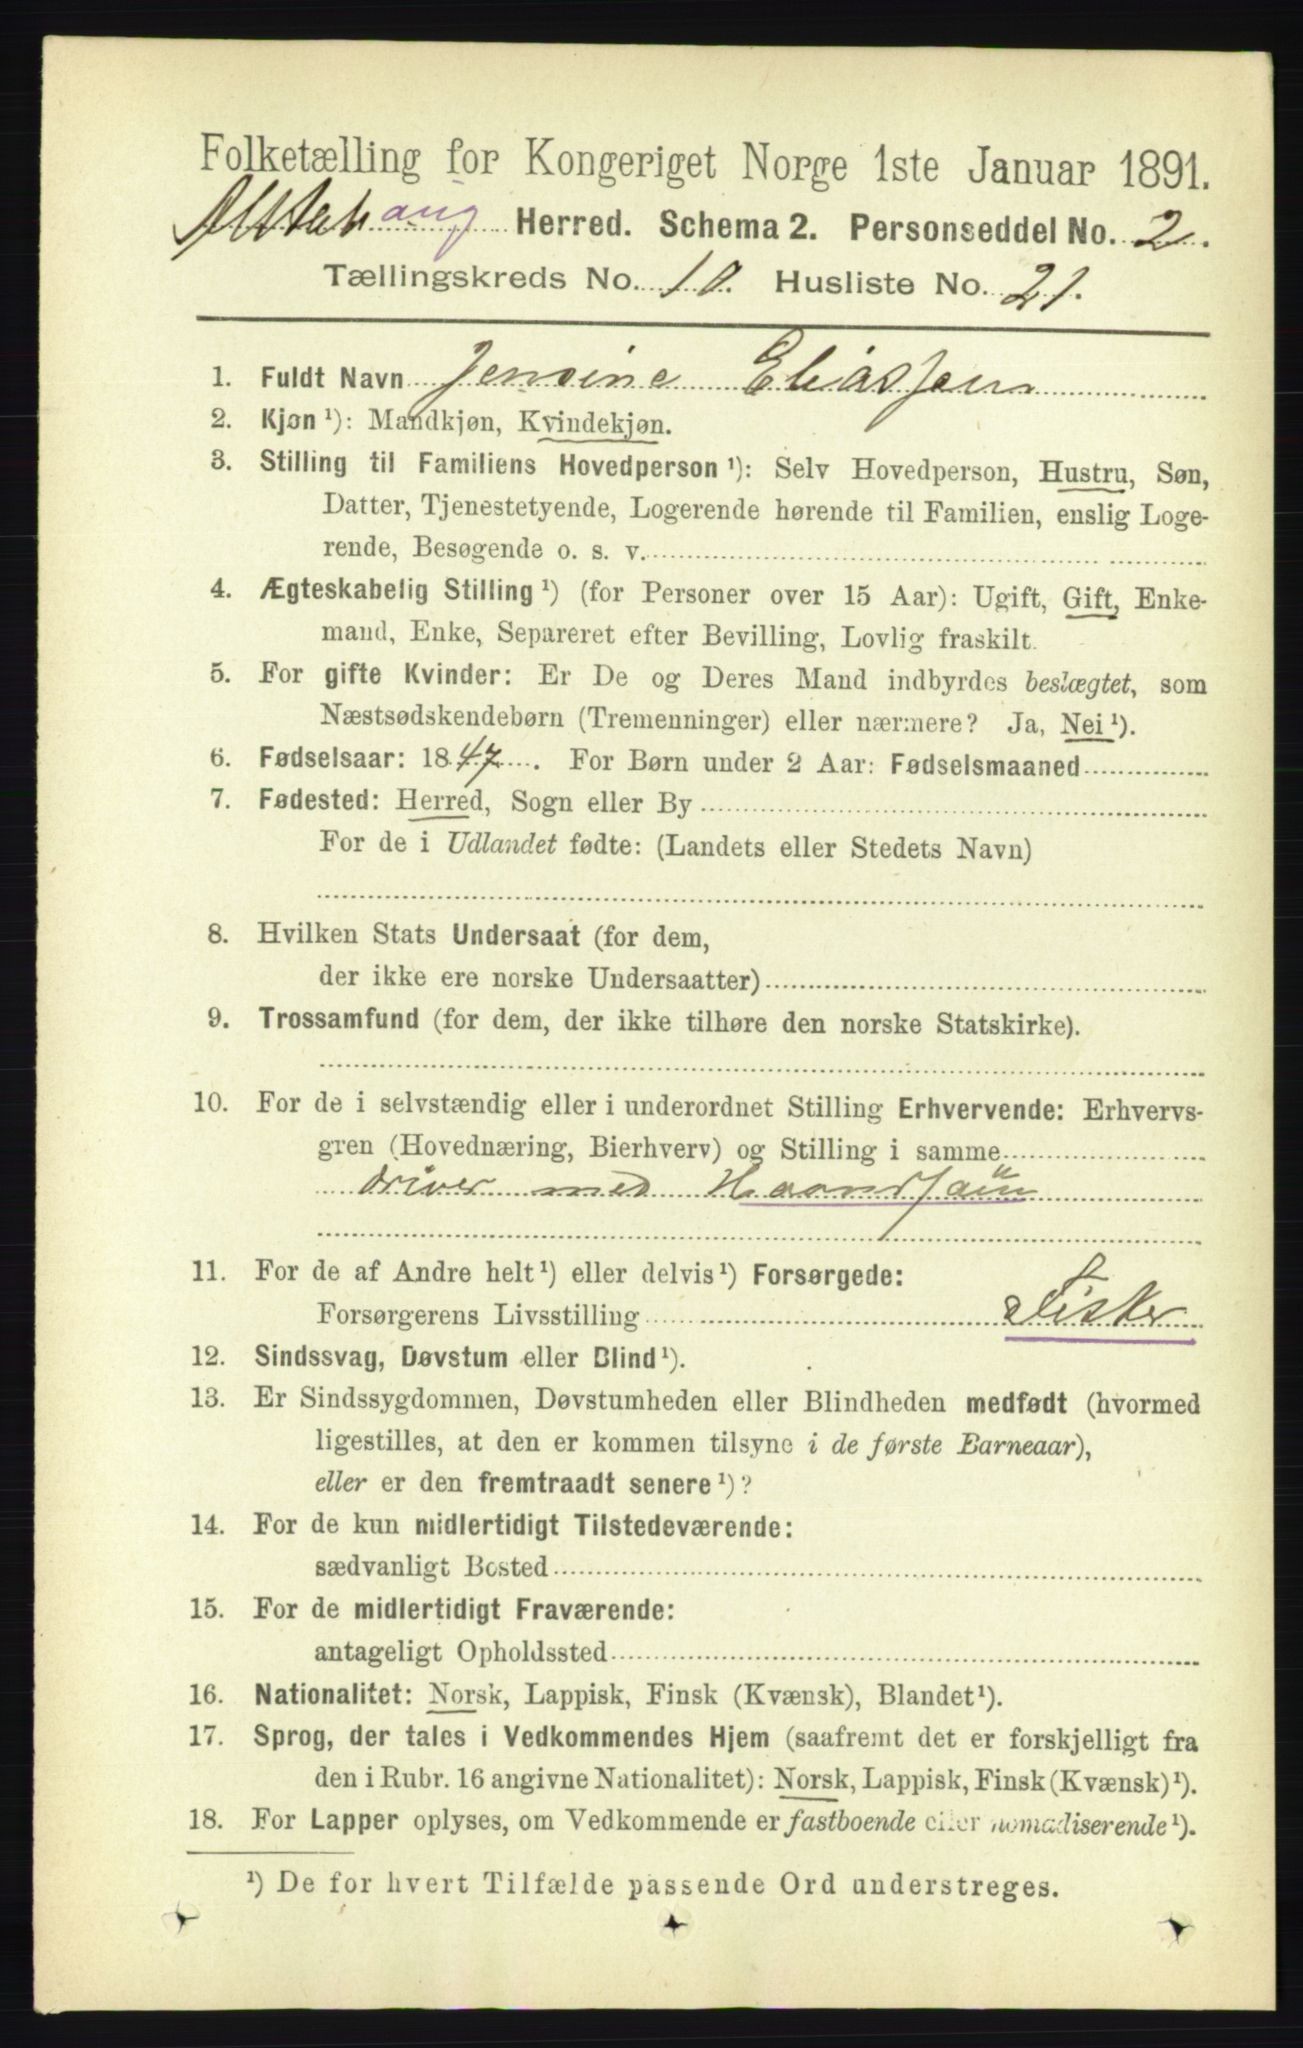 Folketælling for Kongeriget Norge 1ste Januar 1891.
Alstahaug Herred. Schema 2. Personseddel No. 2.
Tællingskreds No. 10. Husliste No. 21.
1. Fuldt Navn Jensine Eliassen
2. Kjøn ¹): Mandkjøn, Kvindekjøn.
3. Stilling til Familiens Hovedperson ¹): Selv Hovedperson, Hustru, Søn,
Datter, Tjenestetyende, Logerende hørende til Familien, enslig Loge-
rende, Besøgende o. s. v.
4. Ægteskabelig Stilling ¹) (for Personer over 15 Aar): Ugift, Gift, Enke-
mand, Enke, Separeret efter Bevilling, Lovlig fraskilt.
5. For gifte Kvinder: Er De og Deres Mand indbyrdes beslægtet, som
Næstsødskendebørn (Tremenninger) eller nærmere? Ja, Nei ¹).
6. Fødselsaar: 1847. For Børn under 2 Aar: Fødselsmaaned
7. Fødested: Herred, Sogn eller By
For de i Udlandet fødte: (Landets eller Stedets Navn)
8. Hvilken Stats Undersaat (for dem,
der ikke ere norske Undersaatter)
9. Trossamfund (for dem, der ikke tilhøre den norske Statskirke).
10. For de i selvstændig eller i underordnet Stilling Erhvervende: Erhvervs-
gren (Hovednæring, Bierhverv) og Stilling i samme
driver med
11. For de af Andre helt ¹) eller delvis ¹) Forsørgede:
Forsørgerens Livsstilling Fisker
12. Sindssvag, Døvstum eller Blind ¹).
13. Er Sindssygdommen, Døvstumheden eller Blindheden medfødt (hvormed
ligestilles, at den er kommen tilsyne i de første Barneaar),
eller er den fremtraadt senere ¹)?
14. For de kun midlertidigt Tilstedeværende:
sædvanligt Bosted
15. For de midlertidigt Fraværende:
antageligt Opholdssted
16. Nationalitet: Norsk, Lappisk, Finsk (Kvænsk), Blandet ¹).
17. Sprog, der tales i Vedkommendes Hjem (saafremt det er forskjelligt fra
den i Rubr. 16 angivne Nationalitet): Norsk, Lappisk, Finsk (Kvænsk) ¹).
18. For Lapper oplyses, om Vedkommende er fastboende eller nomadiserende ¹).
¹) De for hvert Tilfælde passende Ord understreges.